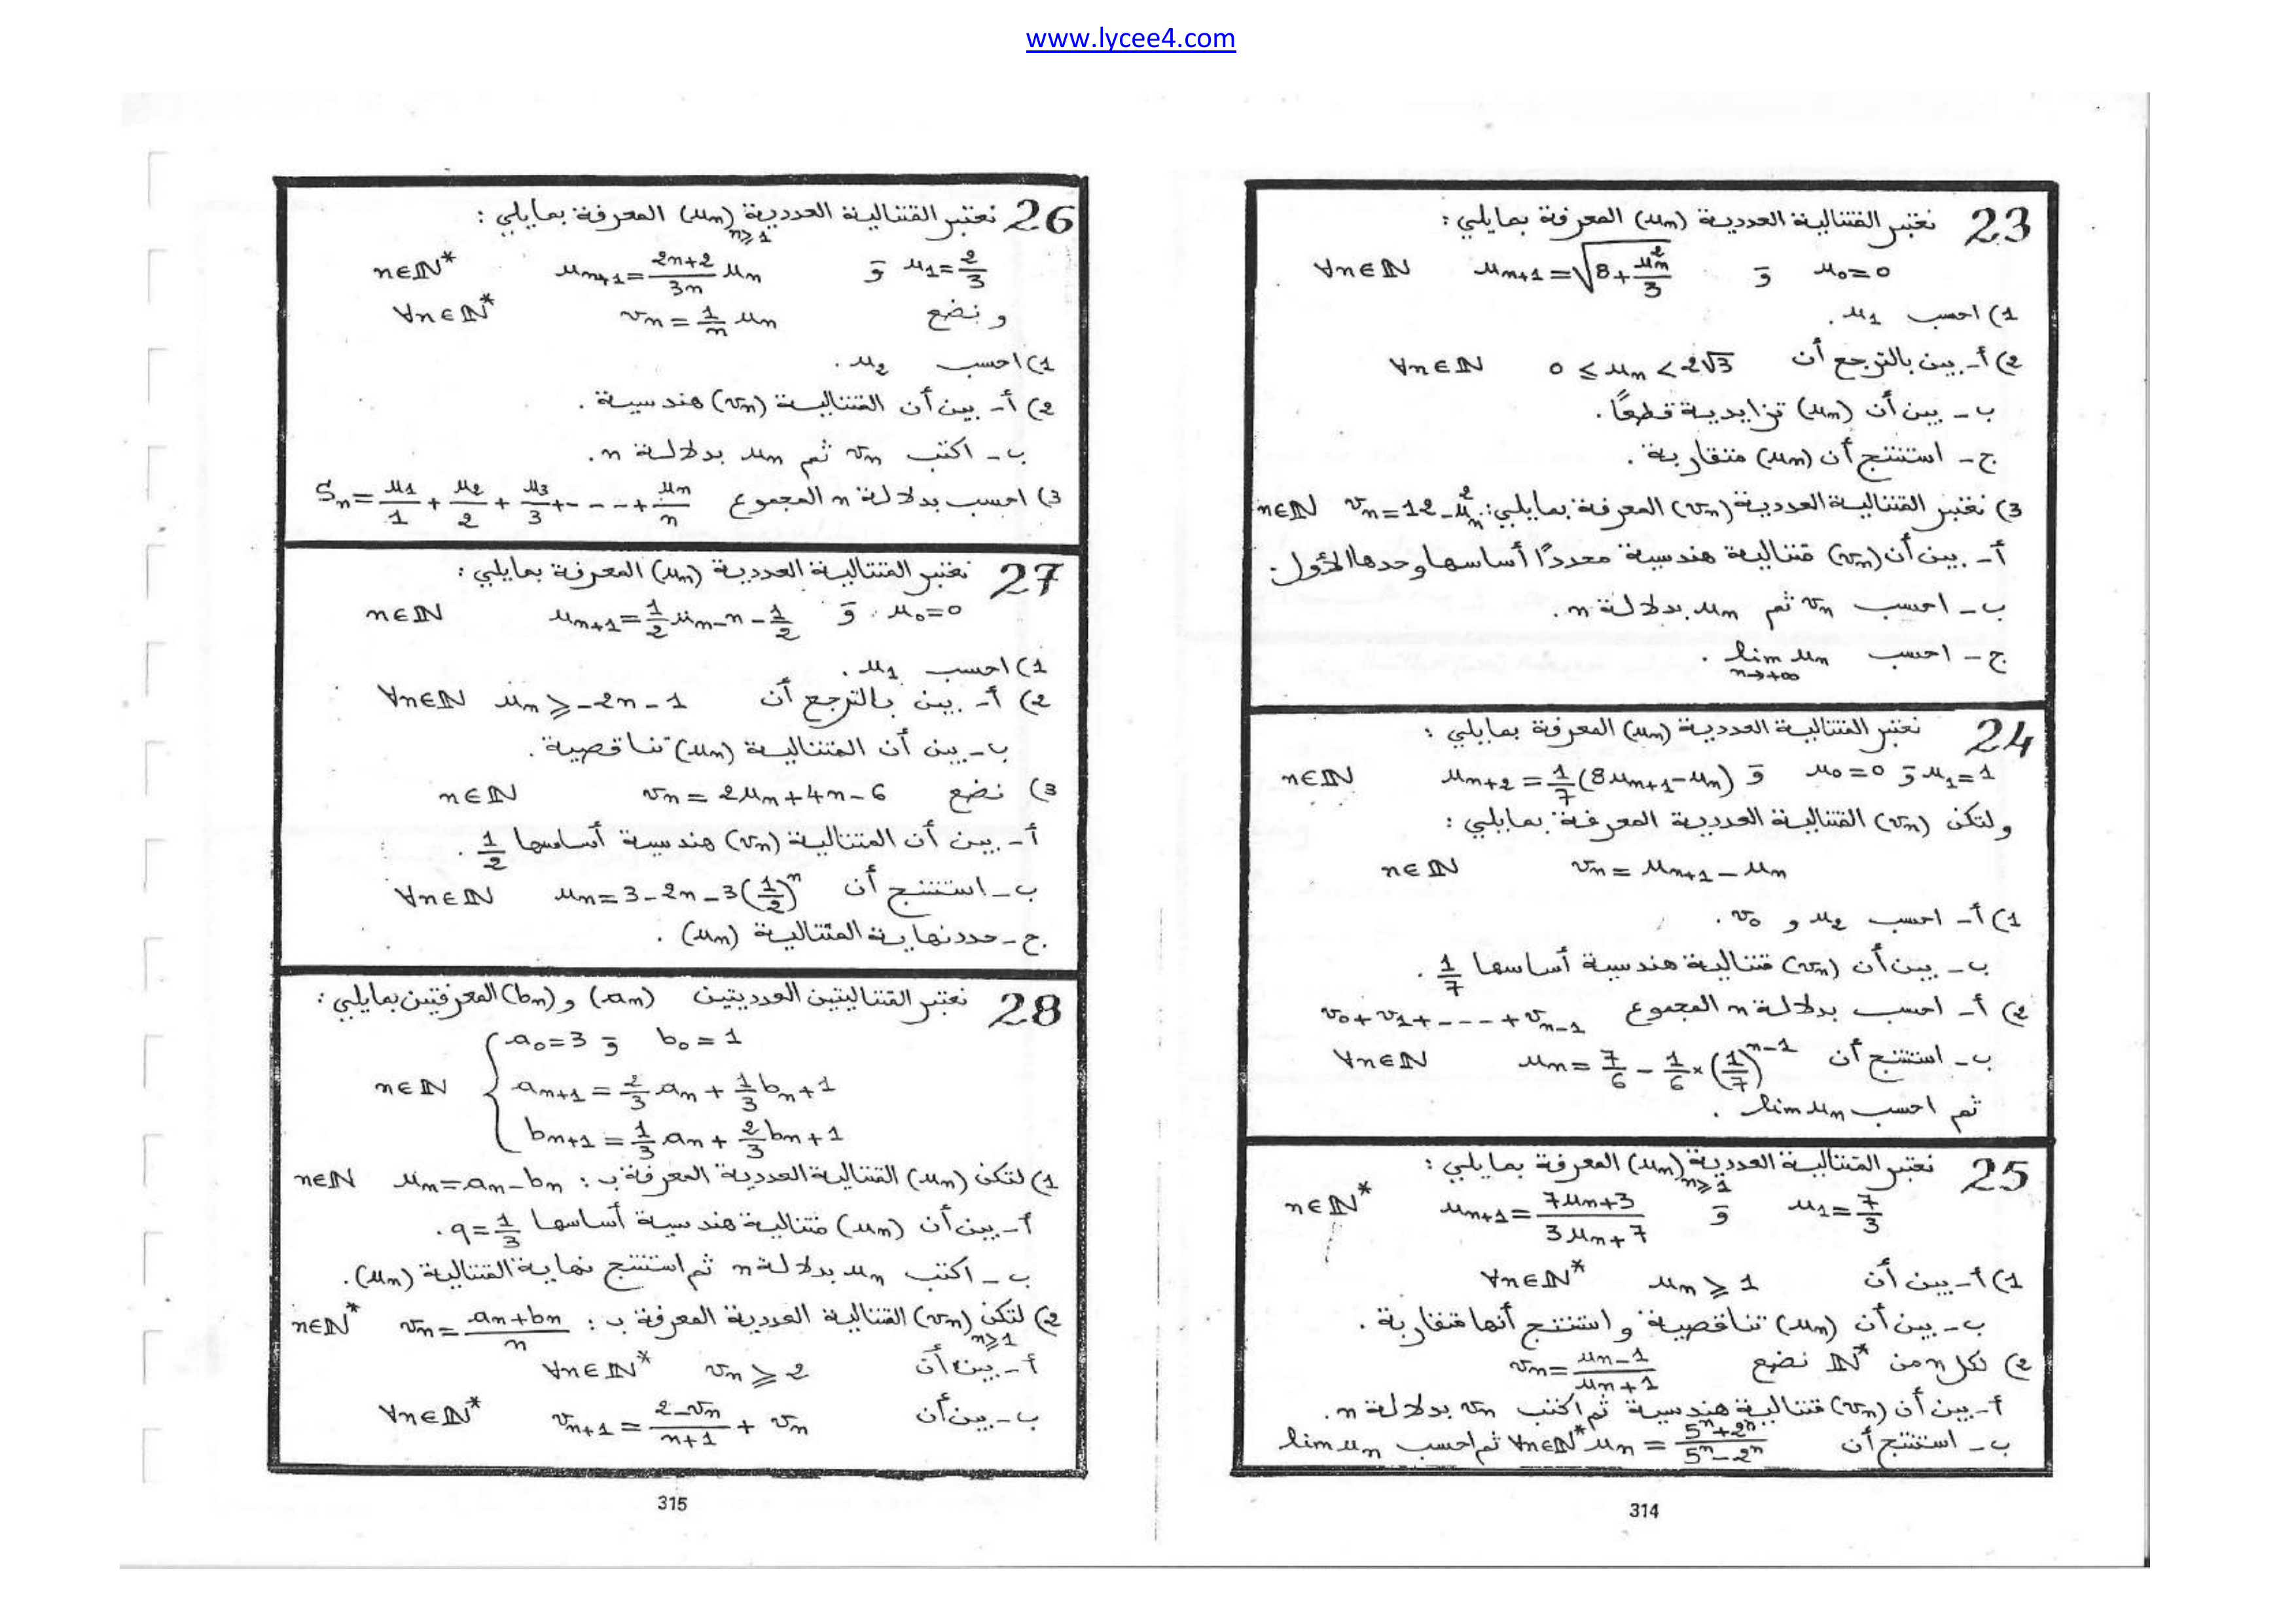 www.lycee4.com
23 نعتبر المتتالية العددية (u_n) المعرفة بمايلي:
u_0=0 و u_{n+1}=√(8+u_n²/3) ∀n∈ℕ
1) احسب u_1.
2) أ- بين بالترجع أن 0 ≤ u_n < 2√3 ∀n∈ℕ
ب- بين أن (u_n) تزايدية قطعًا.
ج- استنتج أن (u_n) متقاربة.
3) نعتبر المتتالية العددية (v_n) المعرفة بمايلي: v_n=12-u_n² n∈ℕ
أ- بين أن (v_n) متتالية هندسية محددًا أساسها وحدها الأول.
ب- احسب v_n ثم u_n بدلالة n.
ج- احسب lim u_n n→+∞.
24 نعتبر المتتالية العددية (u_n) المعرفة بمايلي:
u_1=1 و u_0=0 و u_{n+2}=1/7(8u_{n+1}-u_n) n∈ℕ
ولتكن (v_n) المتتالية العددية المعرفة بمايلي:
v_n=u_{n+1}-u_n n∈ℕ
1) أ- احسب u_2 و v_0.
ب- بين أن (v_n) متتالية هندسية أساسها 1/7.
2) أ- احسب بدلالة n المجموع v_0+v_1+----+v_{n-1}
ب- استنتج أن u_n=7/6-1/6×(1/7)^{n-1} ∀n∈ℕ
ثم احسب lim u_n.
25 نعتبر المتتالية العددية (u_n)_{n≥1} المعرفة بمايلي:
u_1=7/3 و u_{n+1}=(7u_n+3)/(3u_n+7) n∈ℕ*
1) أ- بين أن u_n ≥ 1 ∀n∈ℕ*
ب- بين أن (u_n) تناقصية واستنتج أنها متقاربة.
2) لكل n من ℕ* نضع v_n=(u_n-1)/(u_n+1)
أ- بين أن (v_n) متتالية هندسية ثم اكتب v_n بدلالة n.
ب- استنتج أن u_n=(5^n+2^n)/(5^n-2^n) ∀n∈ℕ* ثم احسب lim u_n
314
26 نعتبر المتتالية العددية (u_n)_{n≥1} المعرفة بمايلي:
u_1=2/3 و u_{n+1}=(2n+2)/(3n) u_n n∈ℕ*
ونضع v_n=1/n u_n ∀n∈ℕ*
1) احسب u_2.
2) أ- بين أن المتتالية (v_n) هندسية.
ب- اكتب v_n ثم u_n بدلالة n.
3) احسب بدلالة n المجموع S_n=u_1/1+u_2/2+u_3/3+----+u_n/n
27 نعتبر المتتالية العددية (u_n) المعرفة بمايلي:
u_0=0 و u_{n+1}=1/2 u_n-n-1/2 n∈ℕ
1) احسب u_1.
2) أ- بين بالترجع أن u_n ≥ -2n-1 ∀n∈ℕ
ب- بين أن المتتالية (u_n) تناقصية.
3) نضع v_n=2u_n+4n-6 n∈ℕ
أ- بين أن المتتالية (v_n) هندسية أساسها 1/2.
ب- استنتج أن u_n=3-2n-3(1/2)^n ∀n∈ℕ
ج- حدد نهاية المتتالية (u_n).
28 نعتبر المتتاليتين العدديتين (a_n) و (b_n) المعرفتين بمايلي:
a_0=3 و b_0=1
n∈ℕ a_{n+1}=2/3 a_n+1/3 b_n+1
b_{n+1}=1/3 a_n+2/3 b_n+1
1) لتكن (u_n) المتتالية العددية المعرفة ب: u_n=a_n-b_n n∈ℕ
أ- بين أن (u_n) متتالية هندسية أساسها q=1/3.
ب- اكتب u_n بدلالة n ثم استنتج نهاية المتتالية (u_n).
2) لتكن (v_n)_{n≥1} المتتالية العددية المعرفة ب: v_n=(a_n+b_n)/n n∈ℕ*
أ- بين أن v_n ≥ 2 ∀n∈ℕ*
ب- بين أن v_{n+1}=(2-v_n)/(n+1)+v_n ∀n∈ℕ*
315